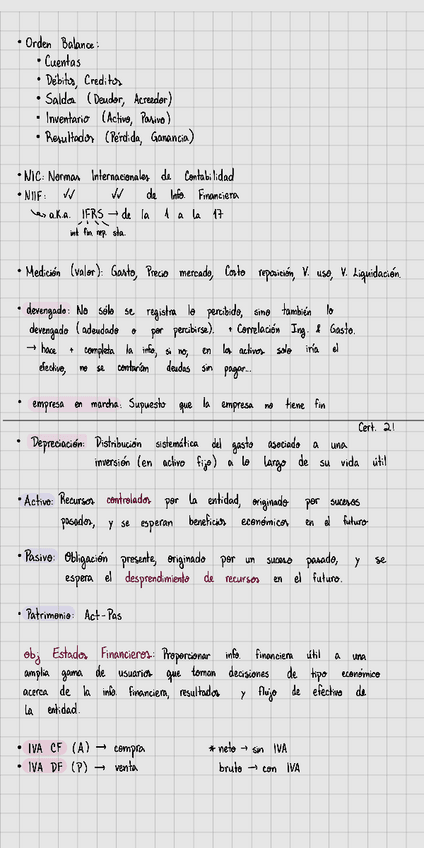 • Orden Balance:
• Cuentas
• Débitos, Creditos
• Saldos (Deudor, Acreedor)
• Inventario (Activo, Pasivo)
• Resultados (Pérdida, Ganancia)
• NIC: Normas Internacionales de Contabilidad
• NIIF: ✓✓ ✓✓ de Info. Financiera
↳ a.k.a. IFRS → de la 1 a la 17
int fin rep sta.
• Medición (valor): Gasto, Precio mercado, Costo reposición, V. uso, V. Liquidación.
• devengado: No sólo se registra lo percibido, sino también lo
devengado (adeudado o por percibirse). + Correlación Ing. & Gasto.
→ hace + completa la info, si no, en los activos solo iría el
efectivo, no se contarían deudas sin pagar...
• empresa en marcha: Supuesto que la empresa no tiene fin
Cert. 2!
• Depreciación: Distribución sistemática del gasto asociado a una
inversión (en activo fijo) a lo largo de su vida útil
• Activo: Recursos controlados por la entidad, originado por sucesos
pasados, y se esperan beneficios económicos en el futuro
• Pasivo: Obligación presente, originado por un suceso pasado, y se
espera el desprendimiento de recursos en el futuro.
• Patrimonio: Act-Pas
obj Estados Financieros: Proporcionar info. financiera útil a una
amplia gama de usuarios que toman decisiones de tipo económico
acerca de la info. financiera, resultados y flujo de efectivo de
la entidad.
• IVA CF (A) → compra * neto → sin IVA
• IVA DF (P) → venta bruto → con IVA